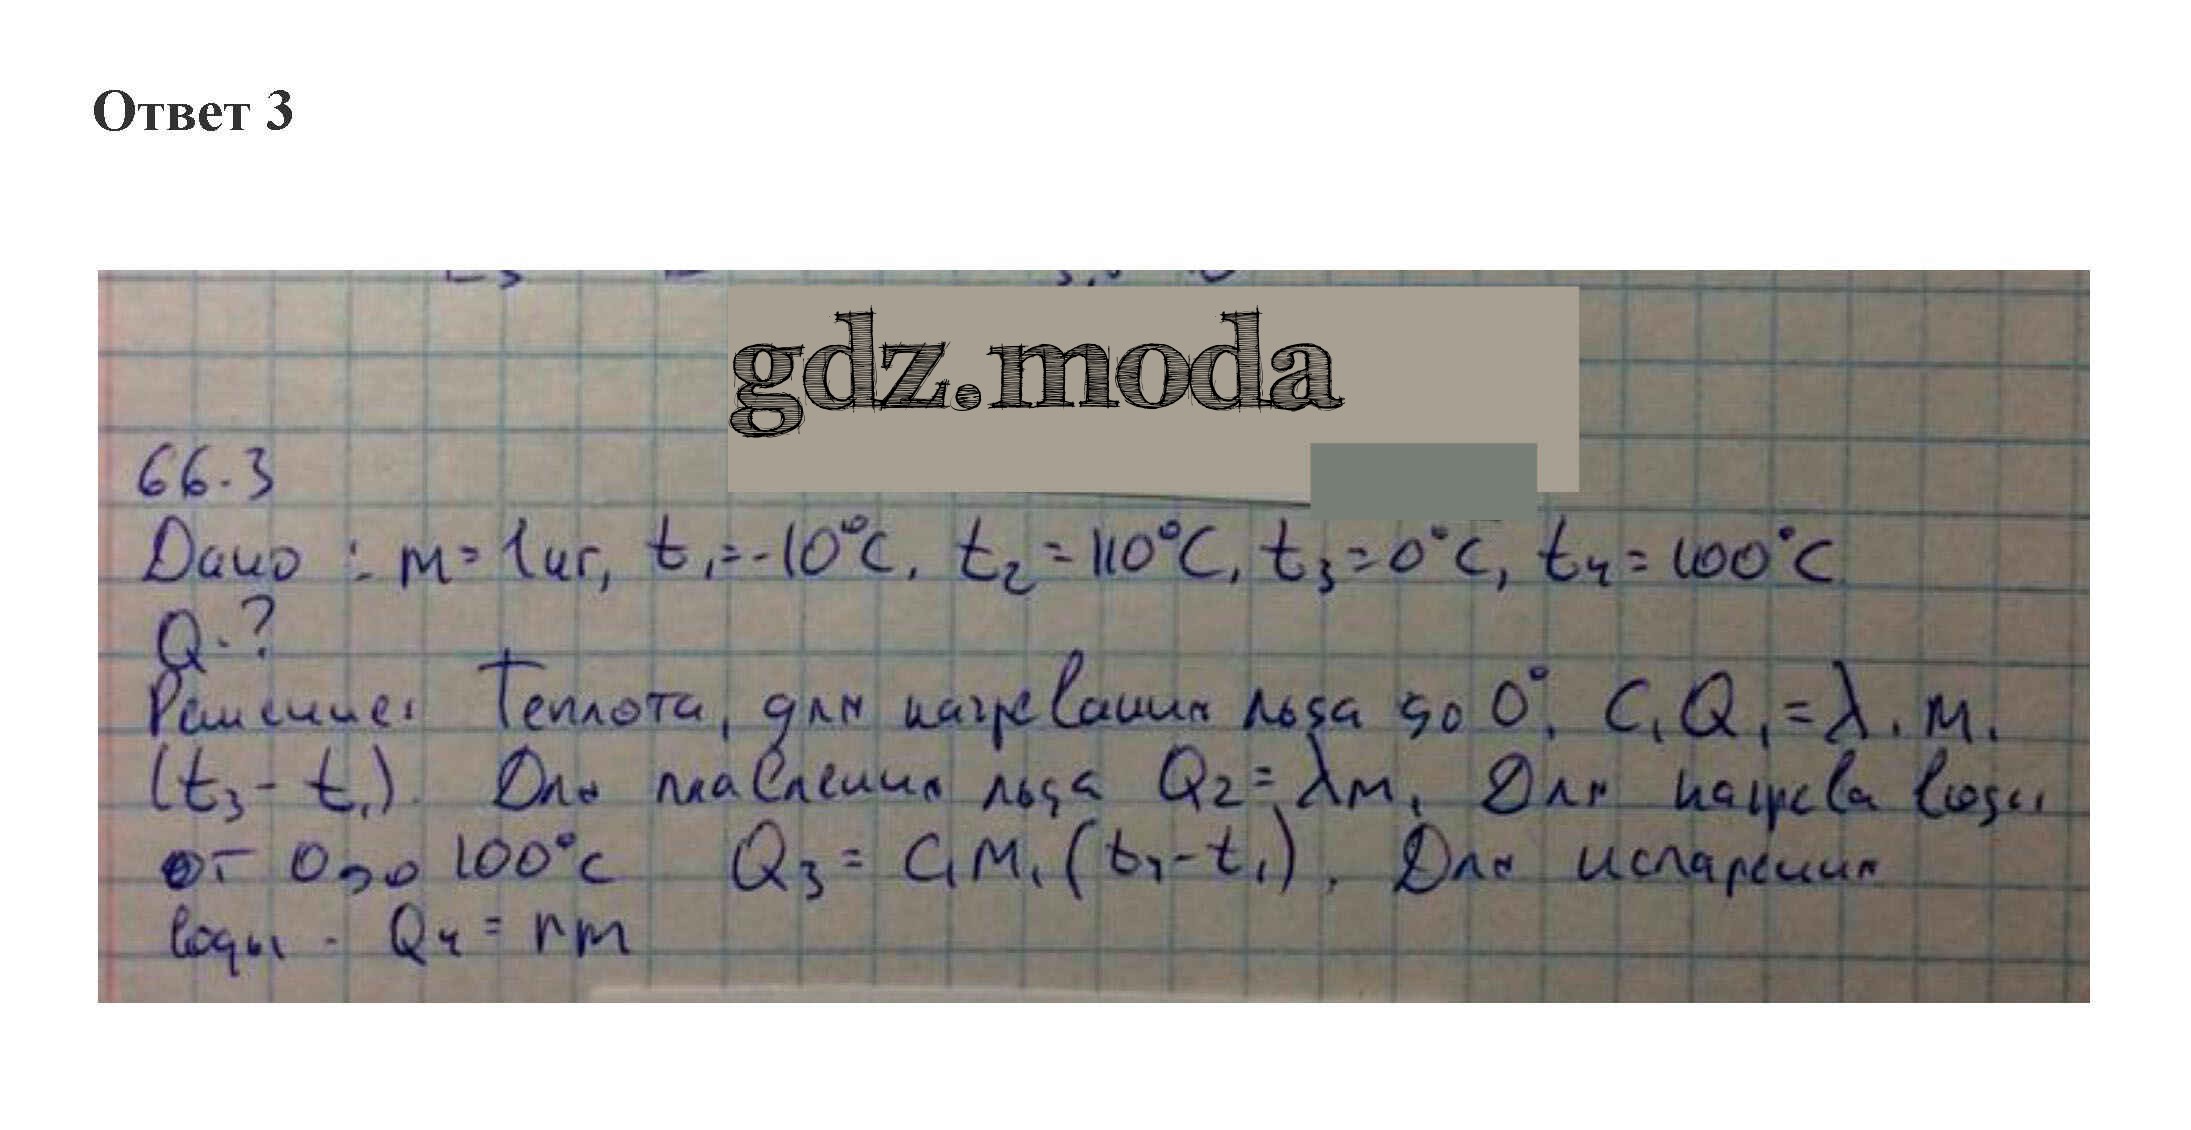 Ответ 3
gdz.moda
66.3
Дано : m = 1 кг, t₁ = -10°C, t₂ = 110°C, t₃ = 0°C, t₄ = 100°C
Q - ?
Решение: Теплота, для нагревания льда до 0°. C, Q₁ = λ₁ m₁
(t₃ - t₁). Для плавления льда Q₂ = λm, Для нагрева воды
от 0 до 100°C Q₃ = C₁m₁(t₄ - t₁). Для испарения
воды - Q₄ = rm